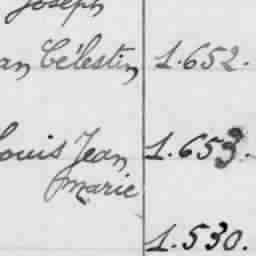 Joseph
an Célestin 1.652.
Louis Jean 1.653.
Marie
1.530.